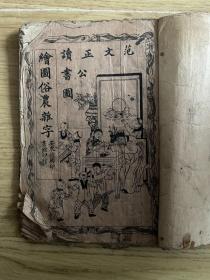 范文正公
讀書圖
繪圖俗農雜字